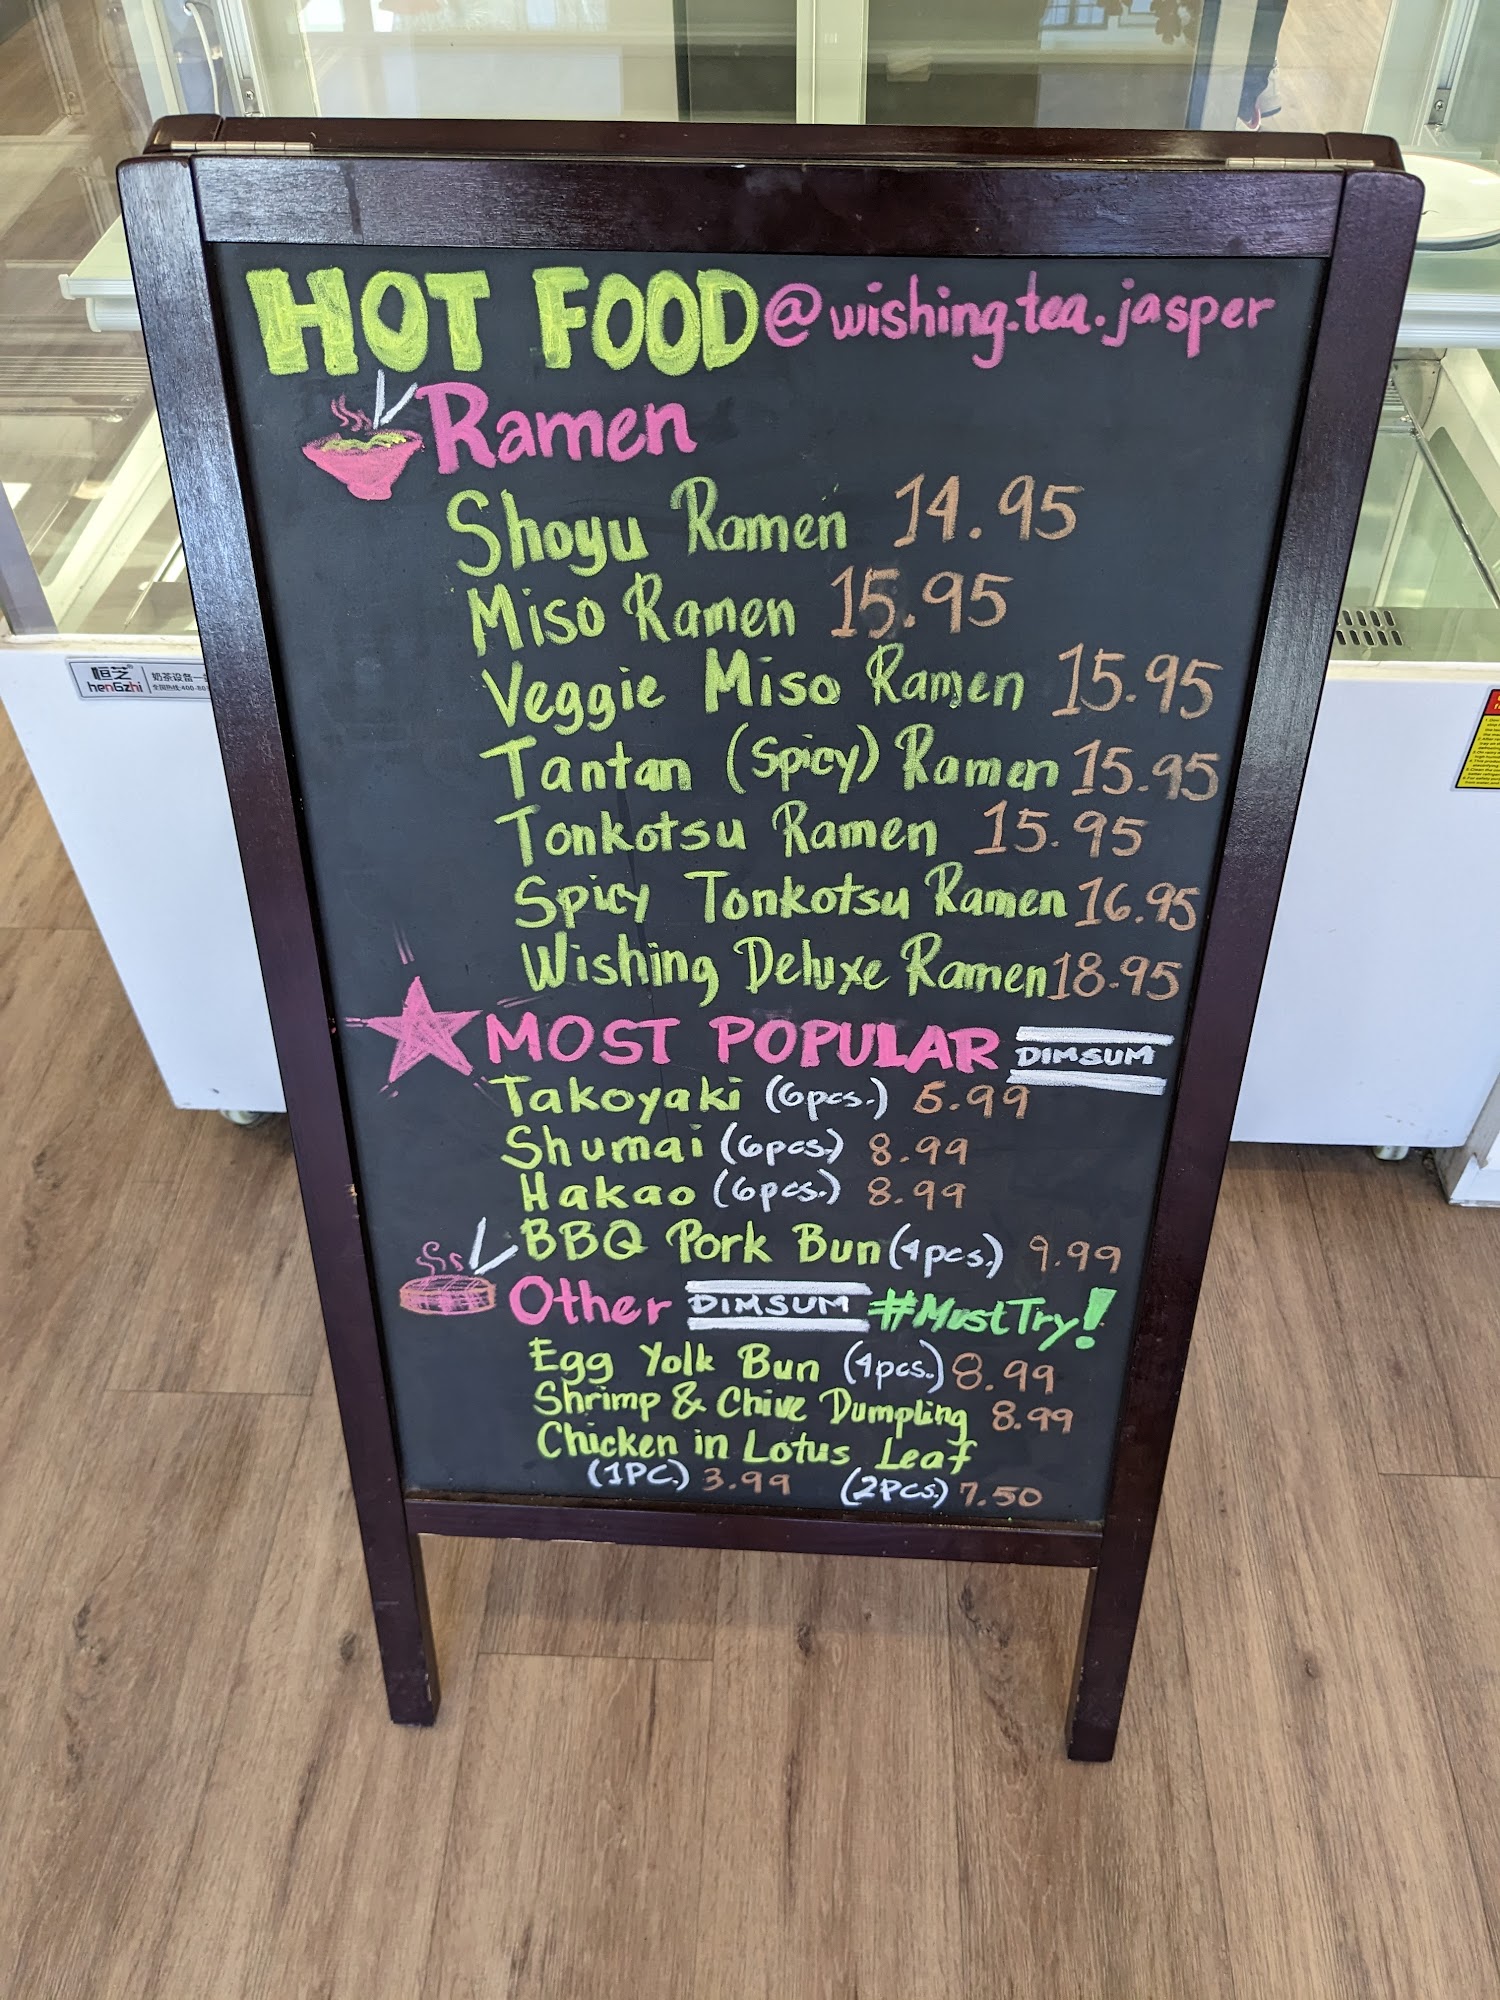 HOT FOOD @wishing.tea.jasper
Ramen
Shoyu Ramen 14.95
Miso Ramen 15.95
Veggie Miso Ramen 15.95
Tantan (Spicy) Ramen 15.95
Tonkotsu Ramen 15.95
Spicy Tonkotsu Ramen 16.95
Wishing Deluxe Ramen 18.95
MOST POPULAR DIMSUM
Takoyaki (6pcs.) 6.99
Shumai (6pcs.) 8.99
Hakao (6pcs.) 8.99
BBQ Pork Bun (4pcs.) 9.99
Other DIMSUM #MustTry!
Egg Yolk Bun (4pcs.) 8.99
Shrimp & Chive Dumpling 8.99
Chicken in Lotus Leaf
(1PC.) 3.99 (2Pcs.) 7.50
恒芝®
henGzhi